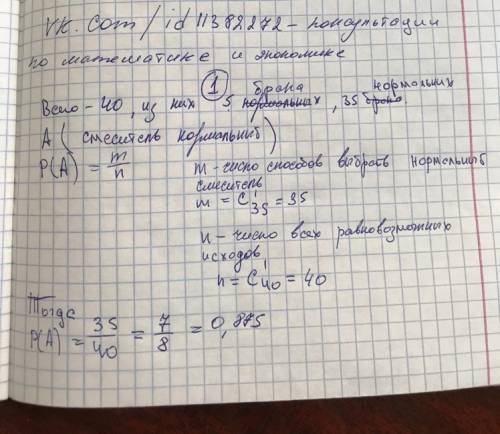 vk.com/id11382272 - консультации
по математике и экономике
1
брака нормальных
Всего - 40, из них 5 нормальных, 35 брака
A (смеситель нормальный)
P(A) = m/n
m - число способов выбрать нормальный
смеситель
m = C¹₃₅ = 35
n - число всех равновозможных
исходов
n = C¹₄₀ = 40
Тогда
P(A) = 35/40 = 7/8 = 0,875